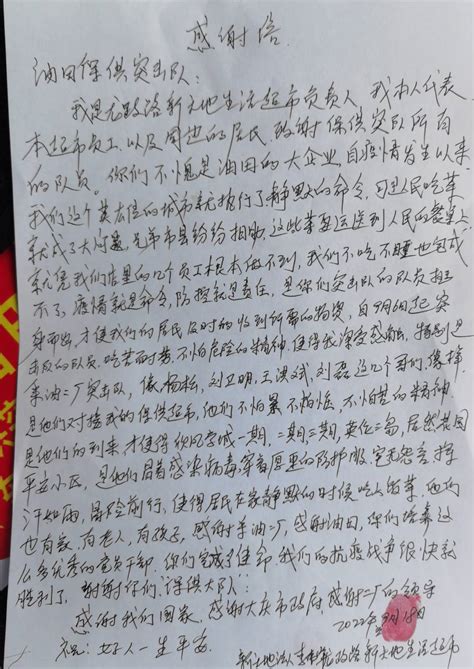 感谢信
油田保供突击队：
我是龙政路新大地生活超市负责人，我本人代表
本超市员工，以及周边的居民感谢保供突队所有
的队员。你们不愧是油田的大企业自疫情发生以来
我们这个英雄的城市就执行了静默的命令，可是人民吃菜
就成了大问题，兄弟市县纷纷相助，这些菜要运送到人民的餐桌上
就凭我们店里的几个员工根本做不到，我们不吃不睡也包成
不了，疫情就是命令，防控就是责任，是你们突击队的队员挺
身而出，才使我们的居民及时的收到所需的物资，自9月6日起突
击队的队员，吃苦而耐劳，不怕危险的精神，使得我深受感触，特别是
采油二厂突击队，像杨松，刘卫明，王洪斌，刘磊这几个哥们，像择
是他们对接我的保供超市，他们不怕累不怕脏，不怕苦的精神
是他们的到来，才使得 一期，二期，三期，英伦三岛，居然美国
平安小区，是他们冒着感染病毒穿着厚重的防护服，它无怨言挥
汗如雨，冒险前行，使得居民在家静默的时候吃上蔬菜，他们
也有家，有老人，有孩子，感谢采油二厂，感谢油田，你们培养这
么多优秀的党员干部，你们完成了使命，我们的抗疫战争很快就
胜利了，谢谢你们，保供大队：
感谢我们国家，感谢大庆市政府，感谢二厂的领导
2022年9月18日
祝：好人一生平安
新大地法人 龙政路新大地生活超市